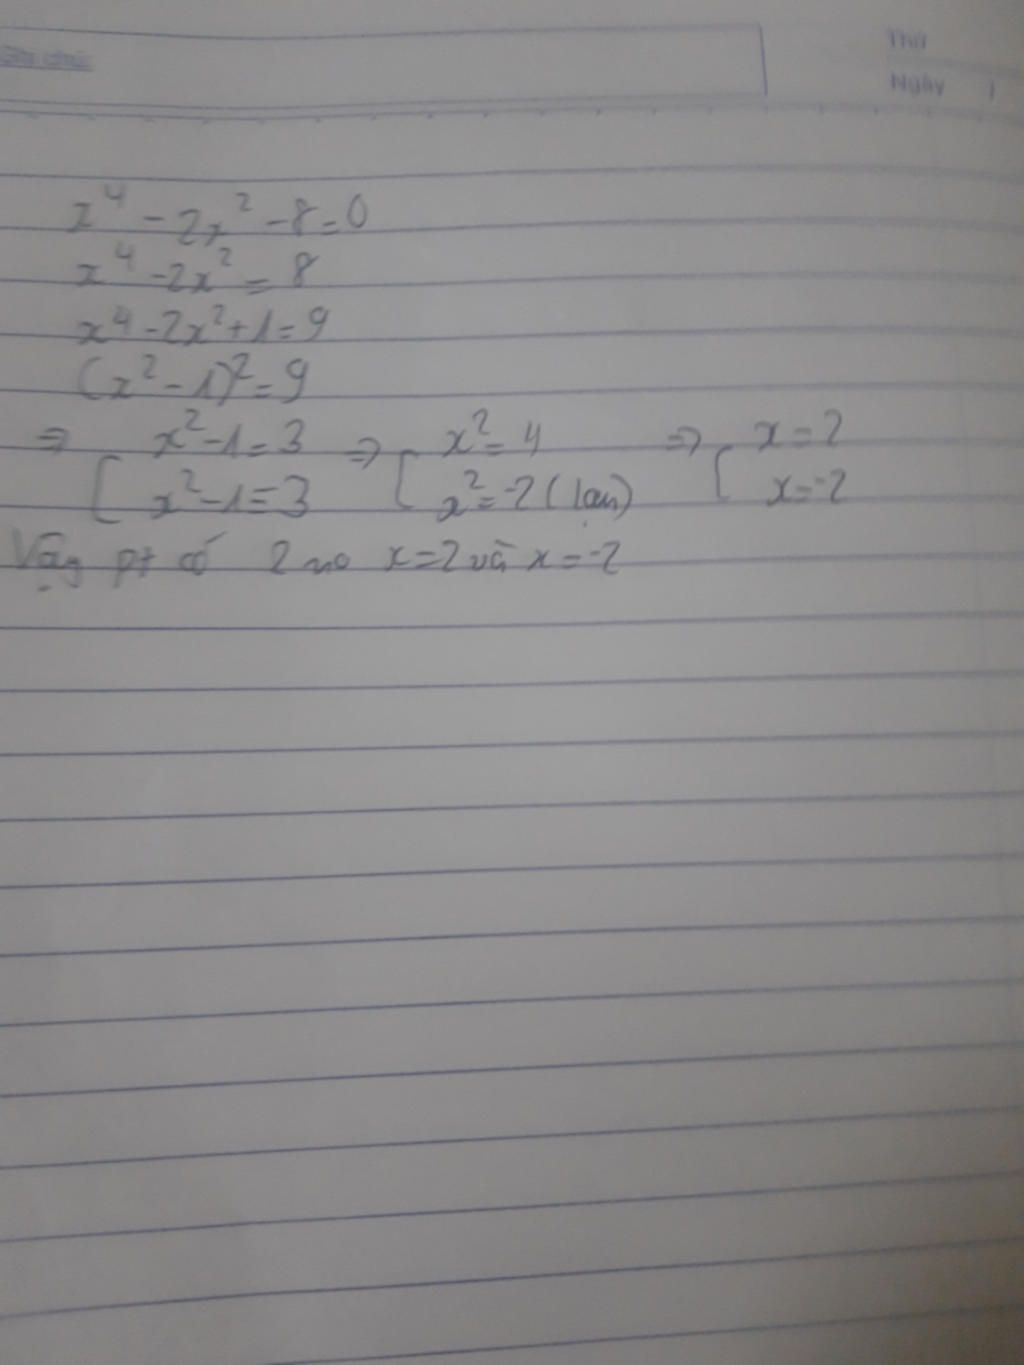 Ghi chú:
Thứ
Ngày /
x⁴ - 2x² - 8 = 0
x⁴ - 2x² = 8
x⁴ - 2x² + 1 = 9
(x² - 1)² = 9
⇒ [ x² - 1 = 3 ⇒ [ x² = 4 ⇒ [ x = 2
x² - 1 = -3 x² = -2 (loại) x = -2
Vậy pt có 2 no x = 2 và x = -2